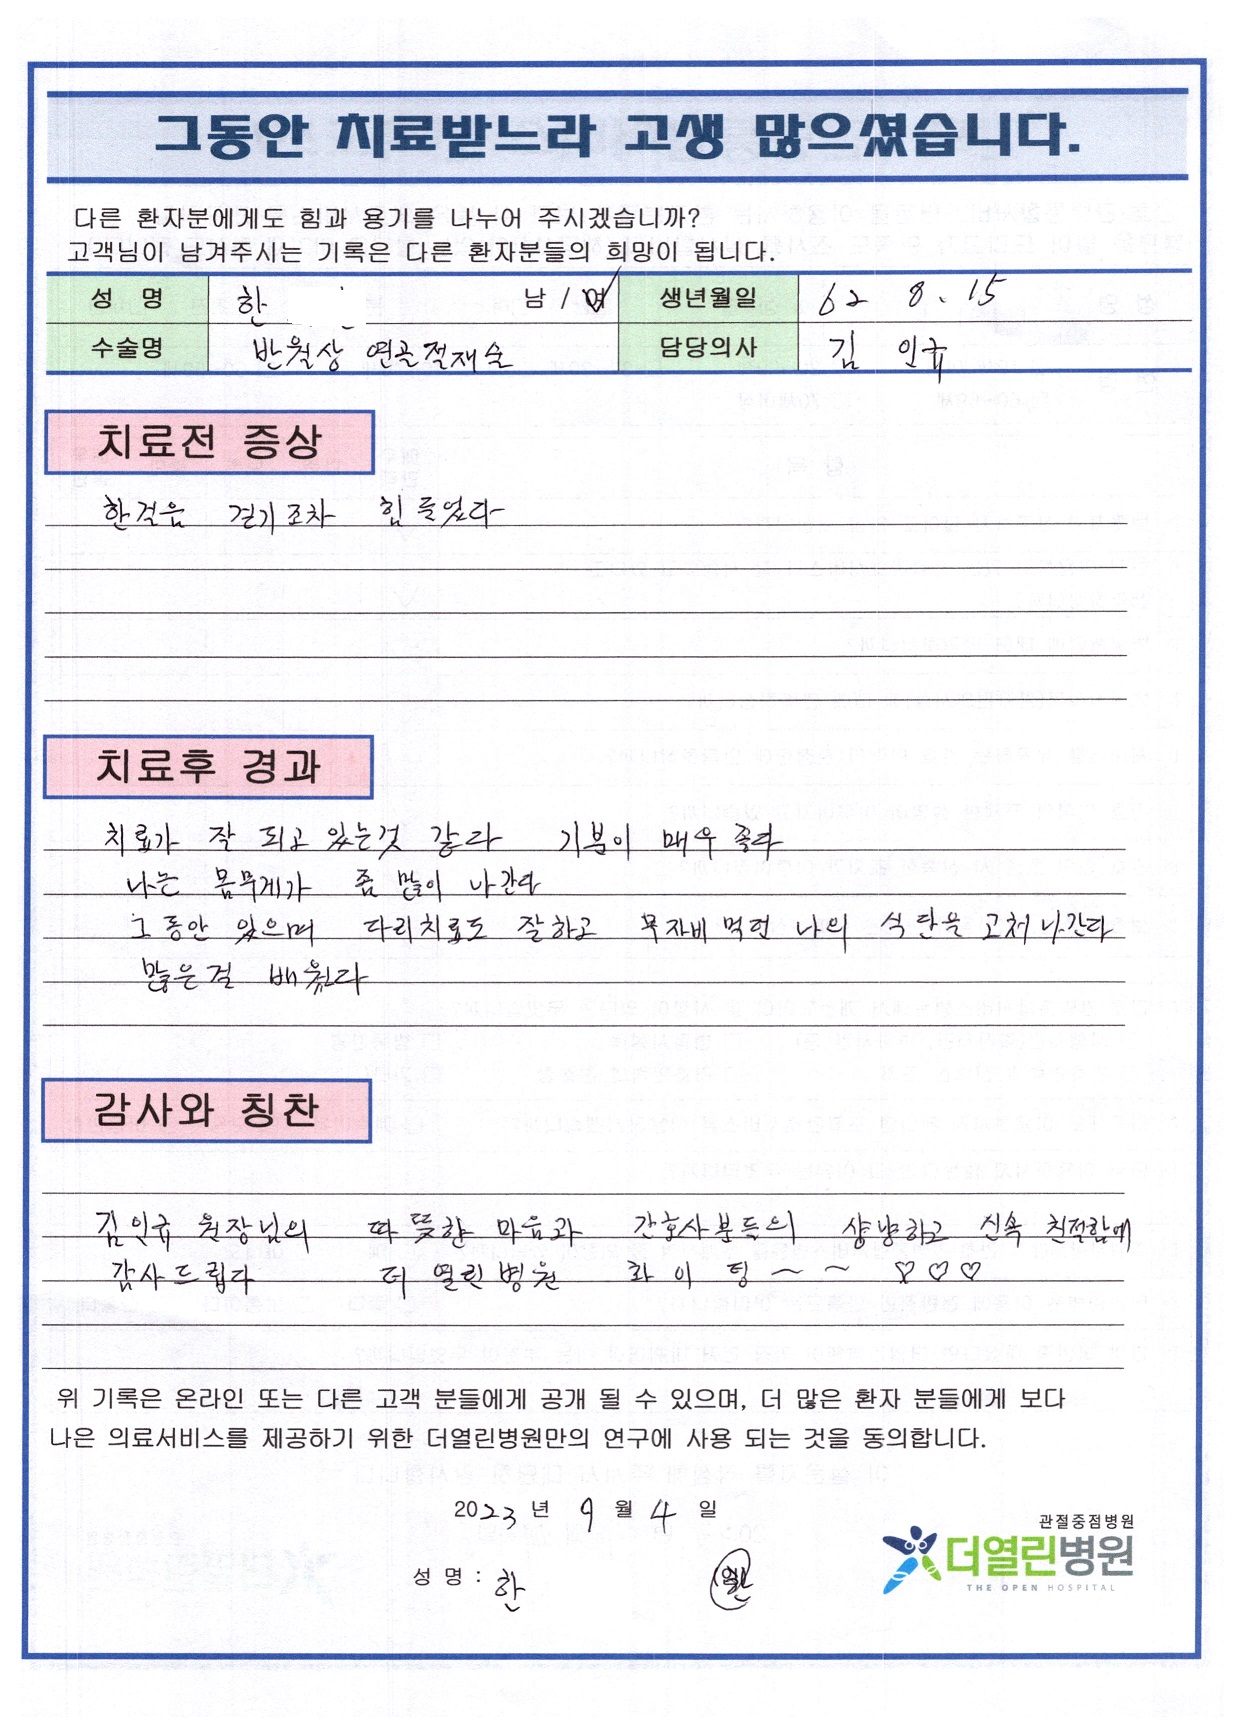 그동안 치료받느라 고생 많으셨습니다.
다른 환자분에게도 힘과 용기를 나누어 주시겠습니까?
고객님이 남겨주시는 기록은 다른 환자분들의 희망이 됩니다.
성 명 한 남 / 여 생년월일 62 8. 15
수술명 반월상 연골절재술 담당의사 김 인규
치료전 증상
한걸음 걷기조차 힘들었다
치료후 경과
치료가 잘 되고 있는것 같다 기분이 매우 좋다
나는 몸무게가 좀 많이 나간다
그동안 있으며 다리치료도 잘하고 무자비 먹던 나의 식단을 고쳐나간다
많은걸 배웠다
감사와 칭찬
김인규 원장님의 따뜻한 마음과 간호사분들의 상냥하고 신속 친절함에
감사드립다 더 열린병원 화이팅~ ~ ♡♡♡
위 기록은 온라인 또는 다른 고객 분들에게 공개 될 수 있으며, 더 많은 환자 분들에게 보다
나은 의료서비스를 제공하기 위한 더열린병원만의 연구에 사용 되는 것을 동의합니다.
2023 년 9 월 4 일
성 명 : 한
관절중점병원
더열린병원
THE OPEN HOSPITAL